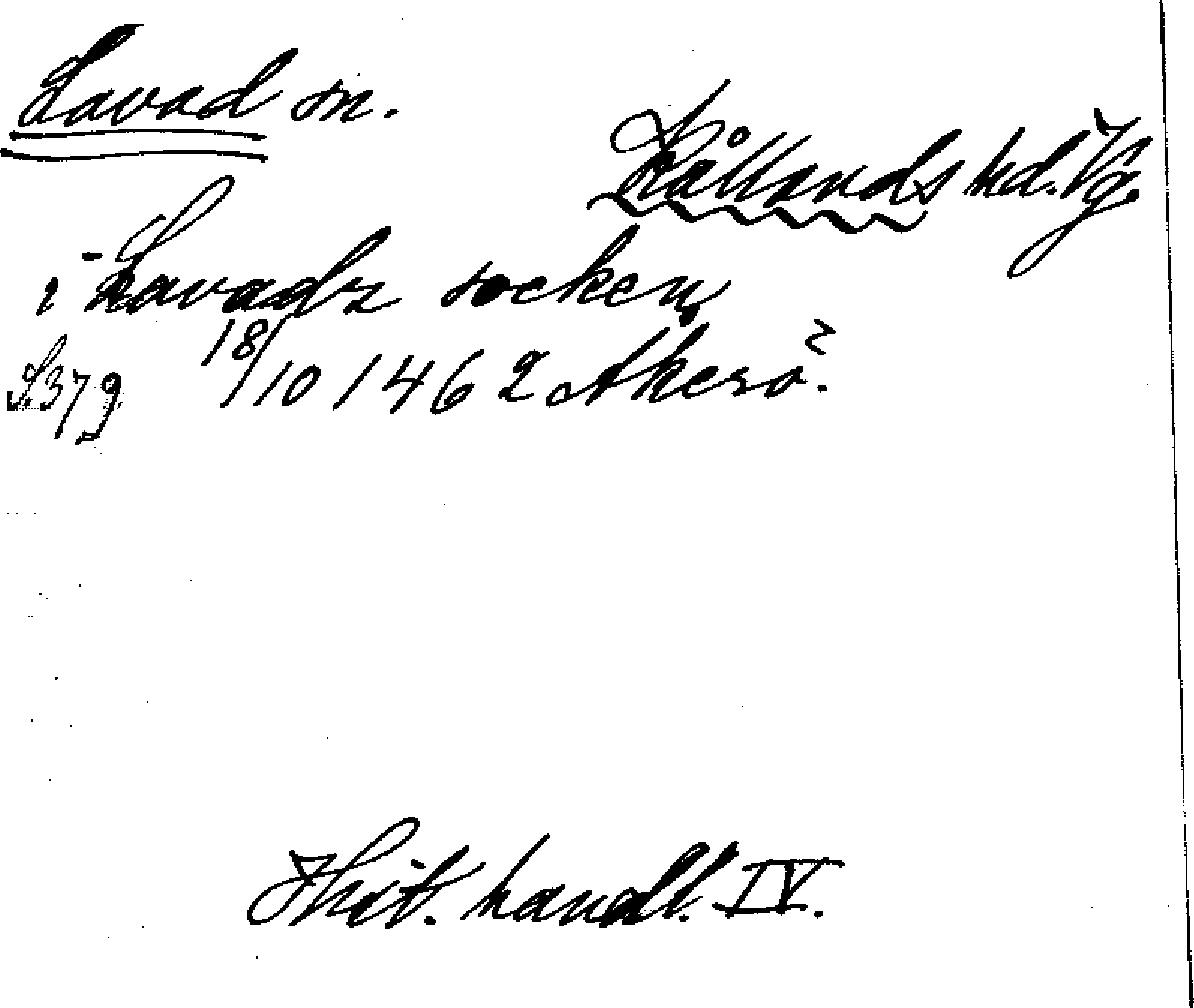 Lavad sn.
Kållands hd. Vg.
i Lavadz socken
S. 379 18/10 1462 Akerö?
Hist. handl. IV.